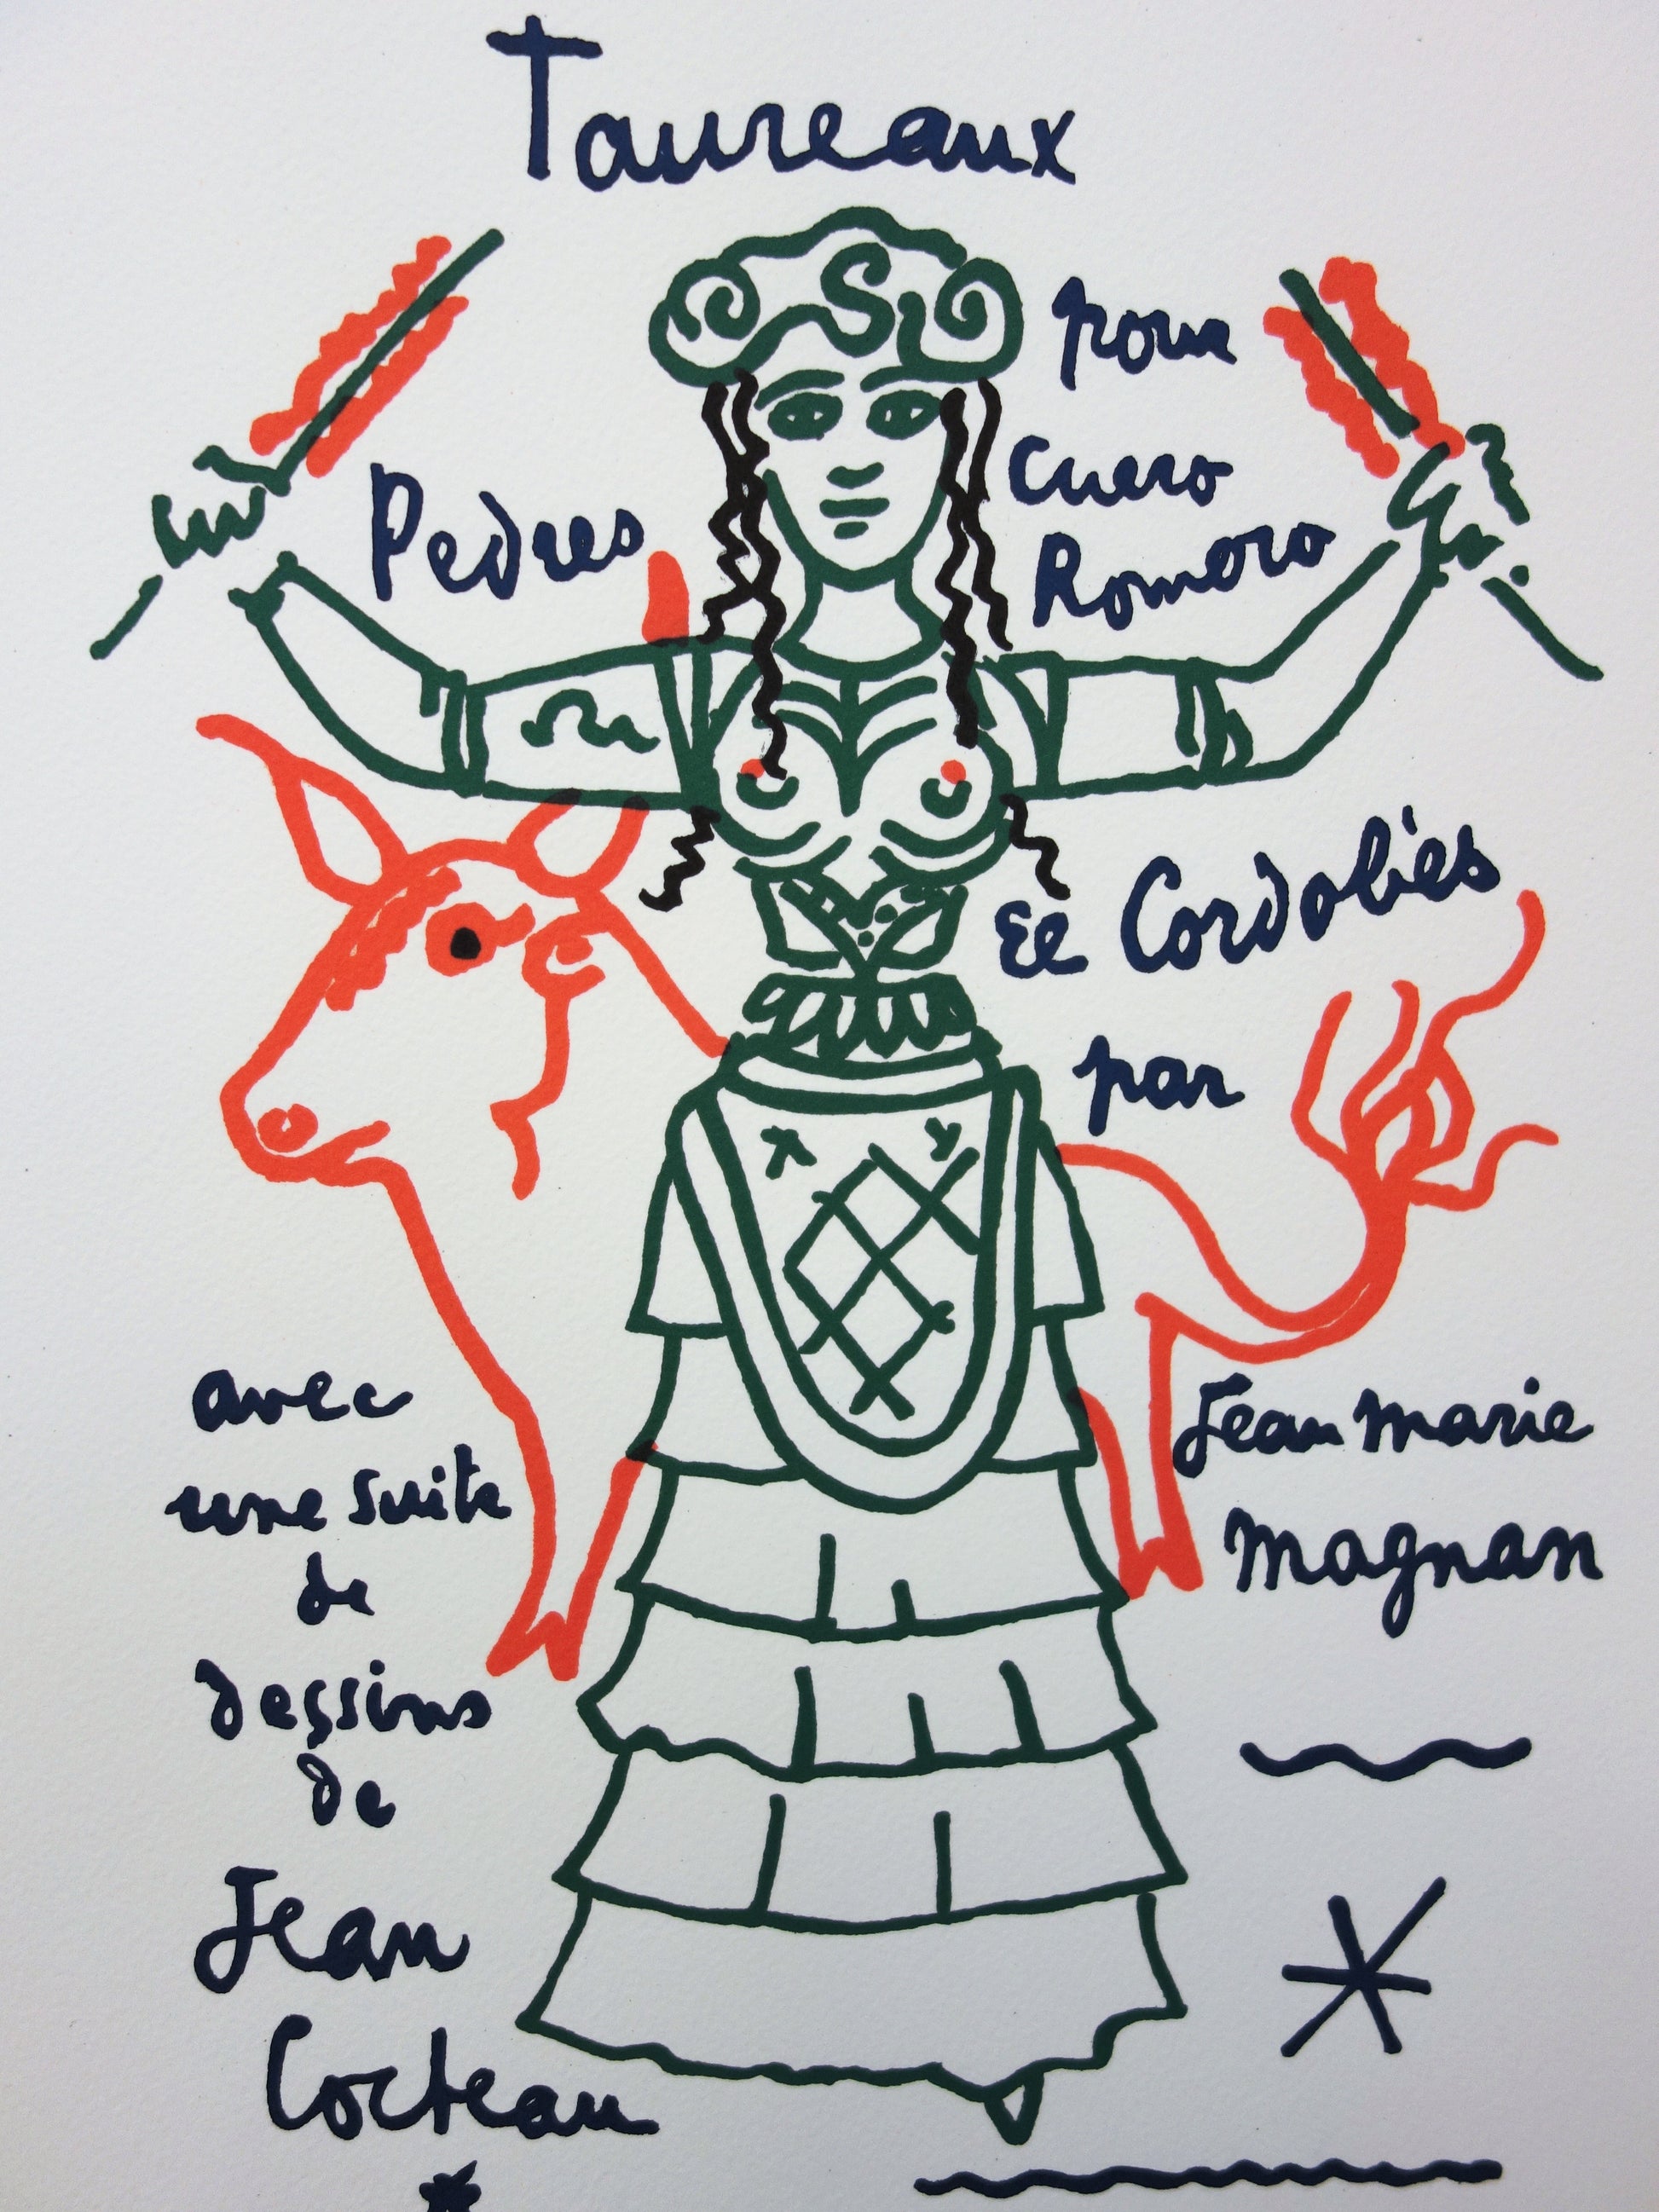 Taureaux
pour
Pedrès
Curro
Romero
El Cordobès
par
Jean Marie
Magnan
avec
une suite
de
dessins
de
Jean
Cocteau